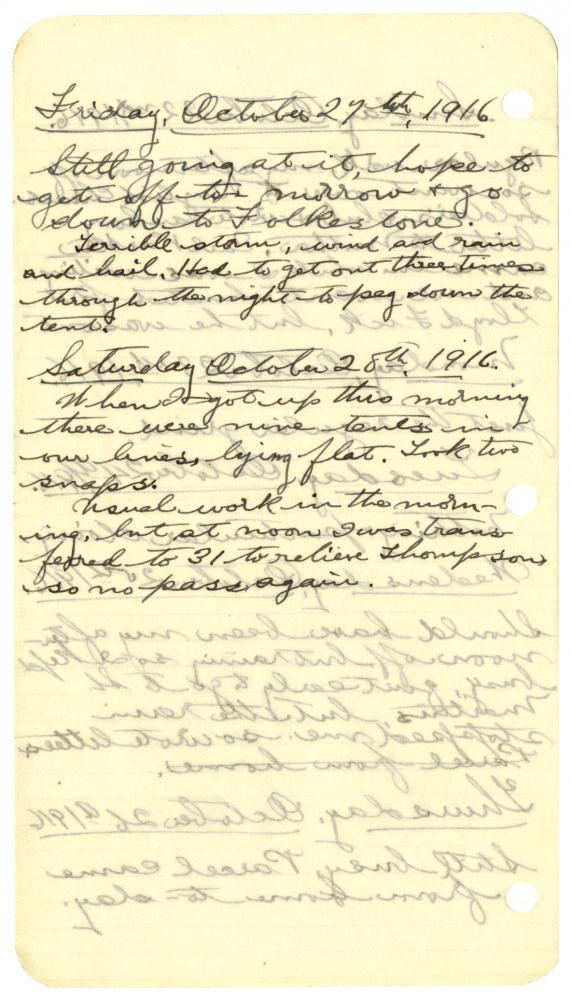 Friday, October 27th, 1916
Still going at it, hope to
get off to-morrow & go
down to Folkestone.
Terrible storm, wind and rain
and hail. Had to get out three times
through the night to peg down the
tent.
Saturday October 28th, 1916.
When I got up this morning
there were nine tents in
our lines, lying flat. Took two
snaps.
Usual work in the morn-
ing, but at noon I was trans-
ferred to 31 to relieve Thompson,
so no pass again.